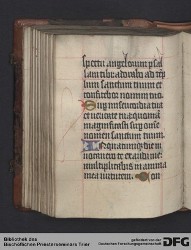 spectu angelorum psal
lam tibi adorabo ad tem
plum sanctum tuum et
confitebor nomini tuo
Super misericordia tua
et veritate tua quoniam
magnificasti super omne
nomen sanctum tuum
In quacumque die in
vocavero te exaudi me
multiplicabis in anima
mea virtutem
Bibliothek des
Bischöflichen Priesterseminars Trier
gefördert von der
Deutschen Forschungsgemeinschaft
DFG